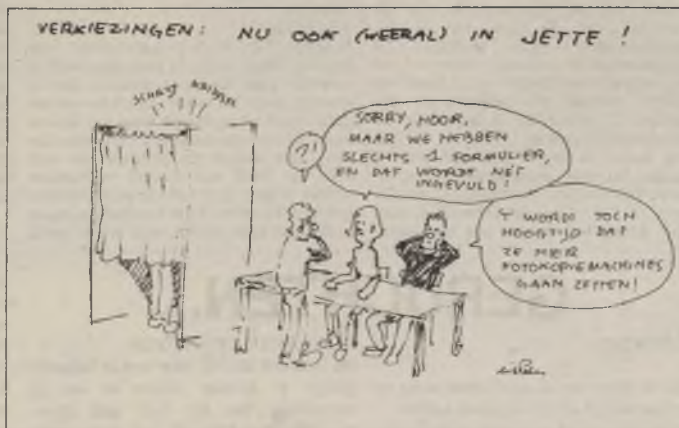 VERKIEZINGEN: NU OOK (WEERAL) IN JETTE!
?!
SORRY, HOOR,
MAAR WE HEBBEN
SLECHTS 1 FORMULIER,
EN DAT WORDT NÉT
INGEVULD!
'T WORDT TOCH
HOOGTIJD DAT
ZE HIER
FOTOKOPIEMACHINES
GAAN ZETTEN!